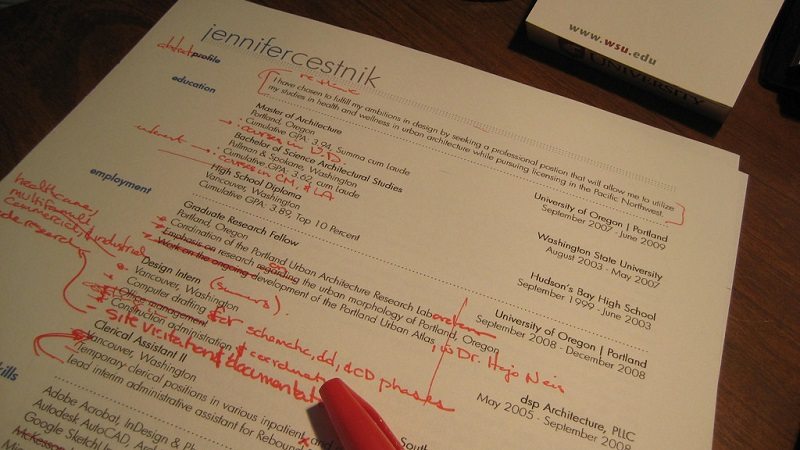 www.wsu.edu
UNIVERSITY
jennifercestnik
profile
I have chosen to fulfill my ambitions in design by seeking a professional position that will allow me to utilize
my studies in health and wellness in urban architecture while pursuing licensing in the Pacific Northwest.
education
Master of Architecture
University of Oregon | Portland
Portland, Oregon
September 2007 - June 2009
Cumulative GPA: 3.94, Summa cum Laude
courses in U.D.
Bachelor of Science Architectural Studies
Washington State University
Pullman & Spokane, Washington
August 2003 - May 2007
Cumulative GPA: 3.62, cum Laude
courses in CM, & LA
High School Diploma
Hudson's Bay High School
Vancouver, Washington
September 1999 - June 2003
Cumulative GPA: 3.89, Top 10 Percent
employment
healthcare,
multifamily,
commercial, & industrial
Graduate Research Fellow
University of Oregon | Portland
Portland, Oregon
September 2008 - December 2008
Condination of the Portland Urban Architecture Research Lab
Emphasis on research regarding the urban morphology of Portland, Oregon
Work on the ongoing development of the Portland Urban Atlas, w Dr. Hajo Neis
Design Intern (summers).
dsp Architecture, PLLC
Vancouver, Washington
May 2005 - September 2008
Computer drafting for schematic, dd, & CD phases
Office management
Construction administration & coordination
site visitation & documentation
Clerical Assistant II
Vancouver, Washington
Temporary clerical positions in various inpatient and
Lead interim administrative assistant for Rebound
skills
Adobe Acrobat, InDesign & Ph
Autodesk AutoCAD, Arc
Google SketchUp
McKesson